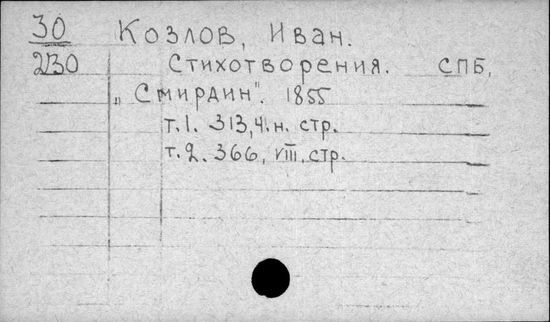 30 Козлов, Иван.
2130 Стихотворения. СПБ,
„Смирдин". 1855
т.1. 313, 4.н. стр.
т.2. 366, VIII, стр.